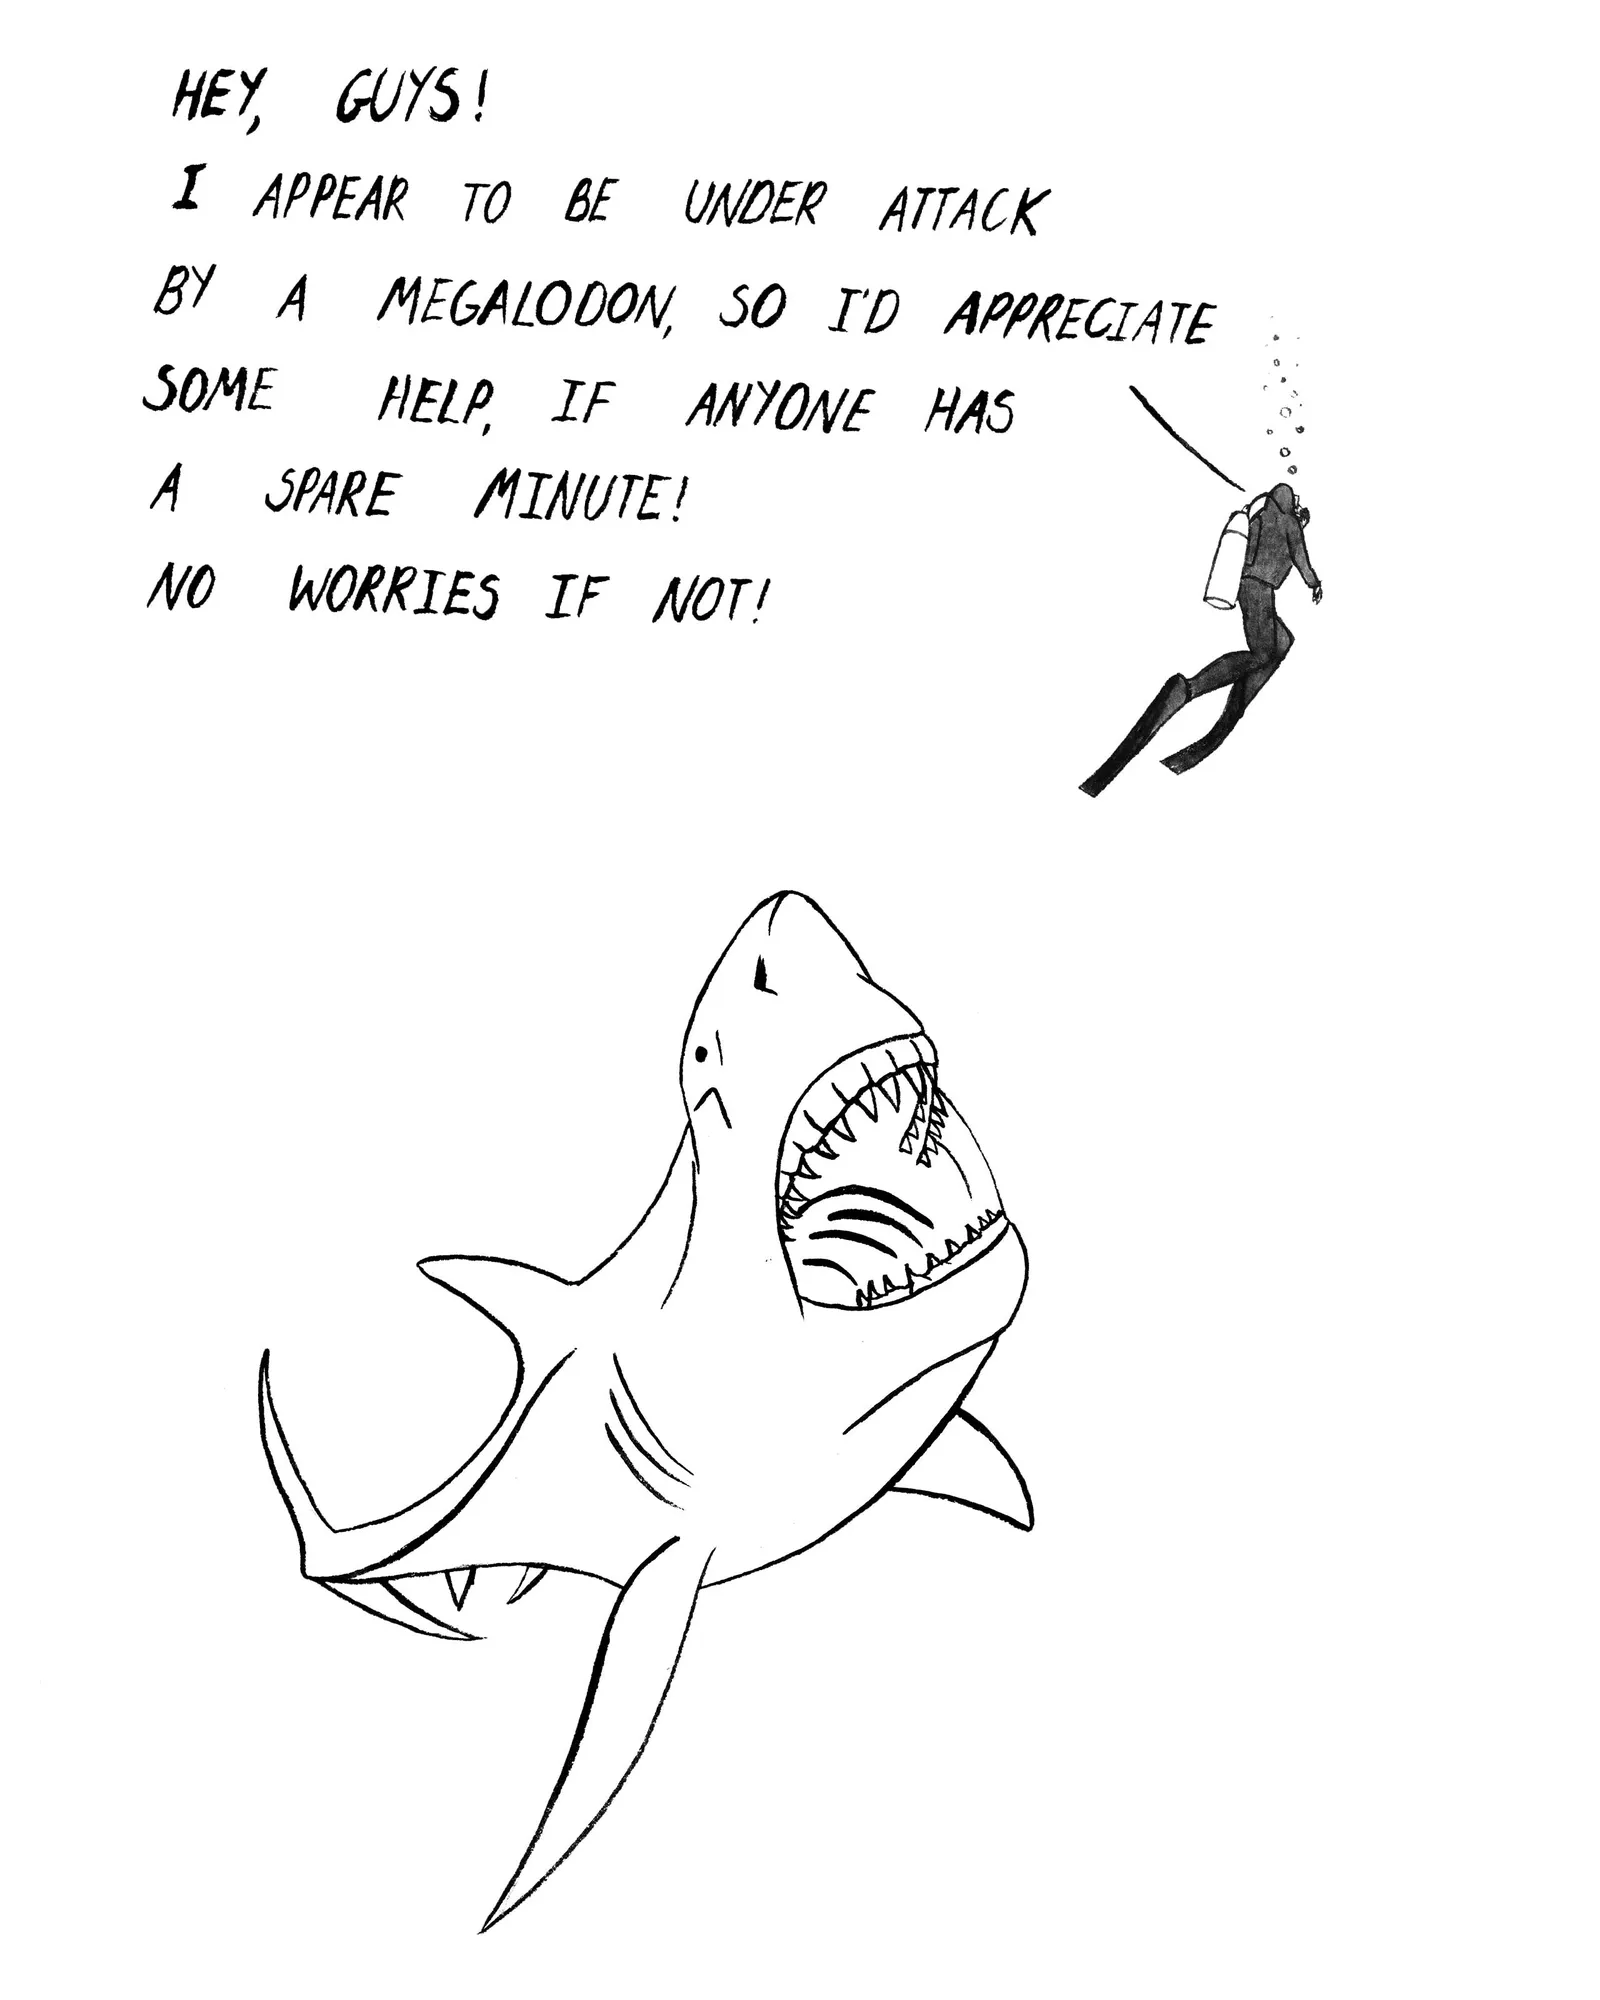 HEY, GUYS!
I APPEAR TO BE UNDER ATTACK
BY A MEGALODON, SO I'D APPRECIATE
SOME HELP, IF ANYONE HAS
A SPARE MINUTE!
NO WORRIES IF NOT!